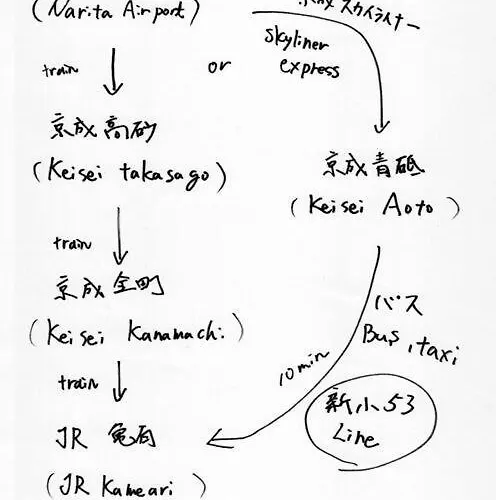 (Narita Airport)
京成スカイライナー
Skyliner
express
train
or
京成高砂
(Keisei takasago)
京成青砥
(Keisei Aoto)
train
京成金町
(Keisei Kanamachi)
バス
Bus, taxi
10min
train
新小53
Line
JR 亀有
(JR Kameari)